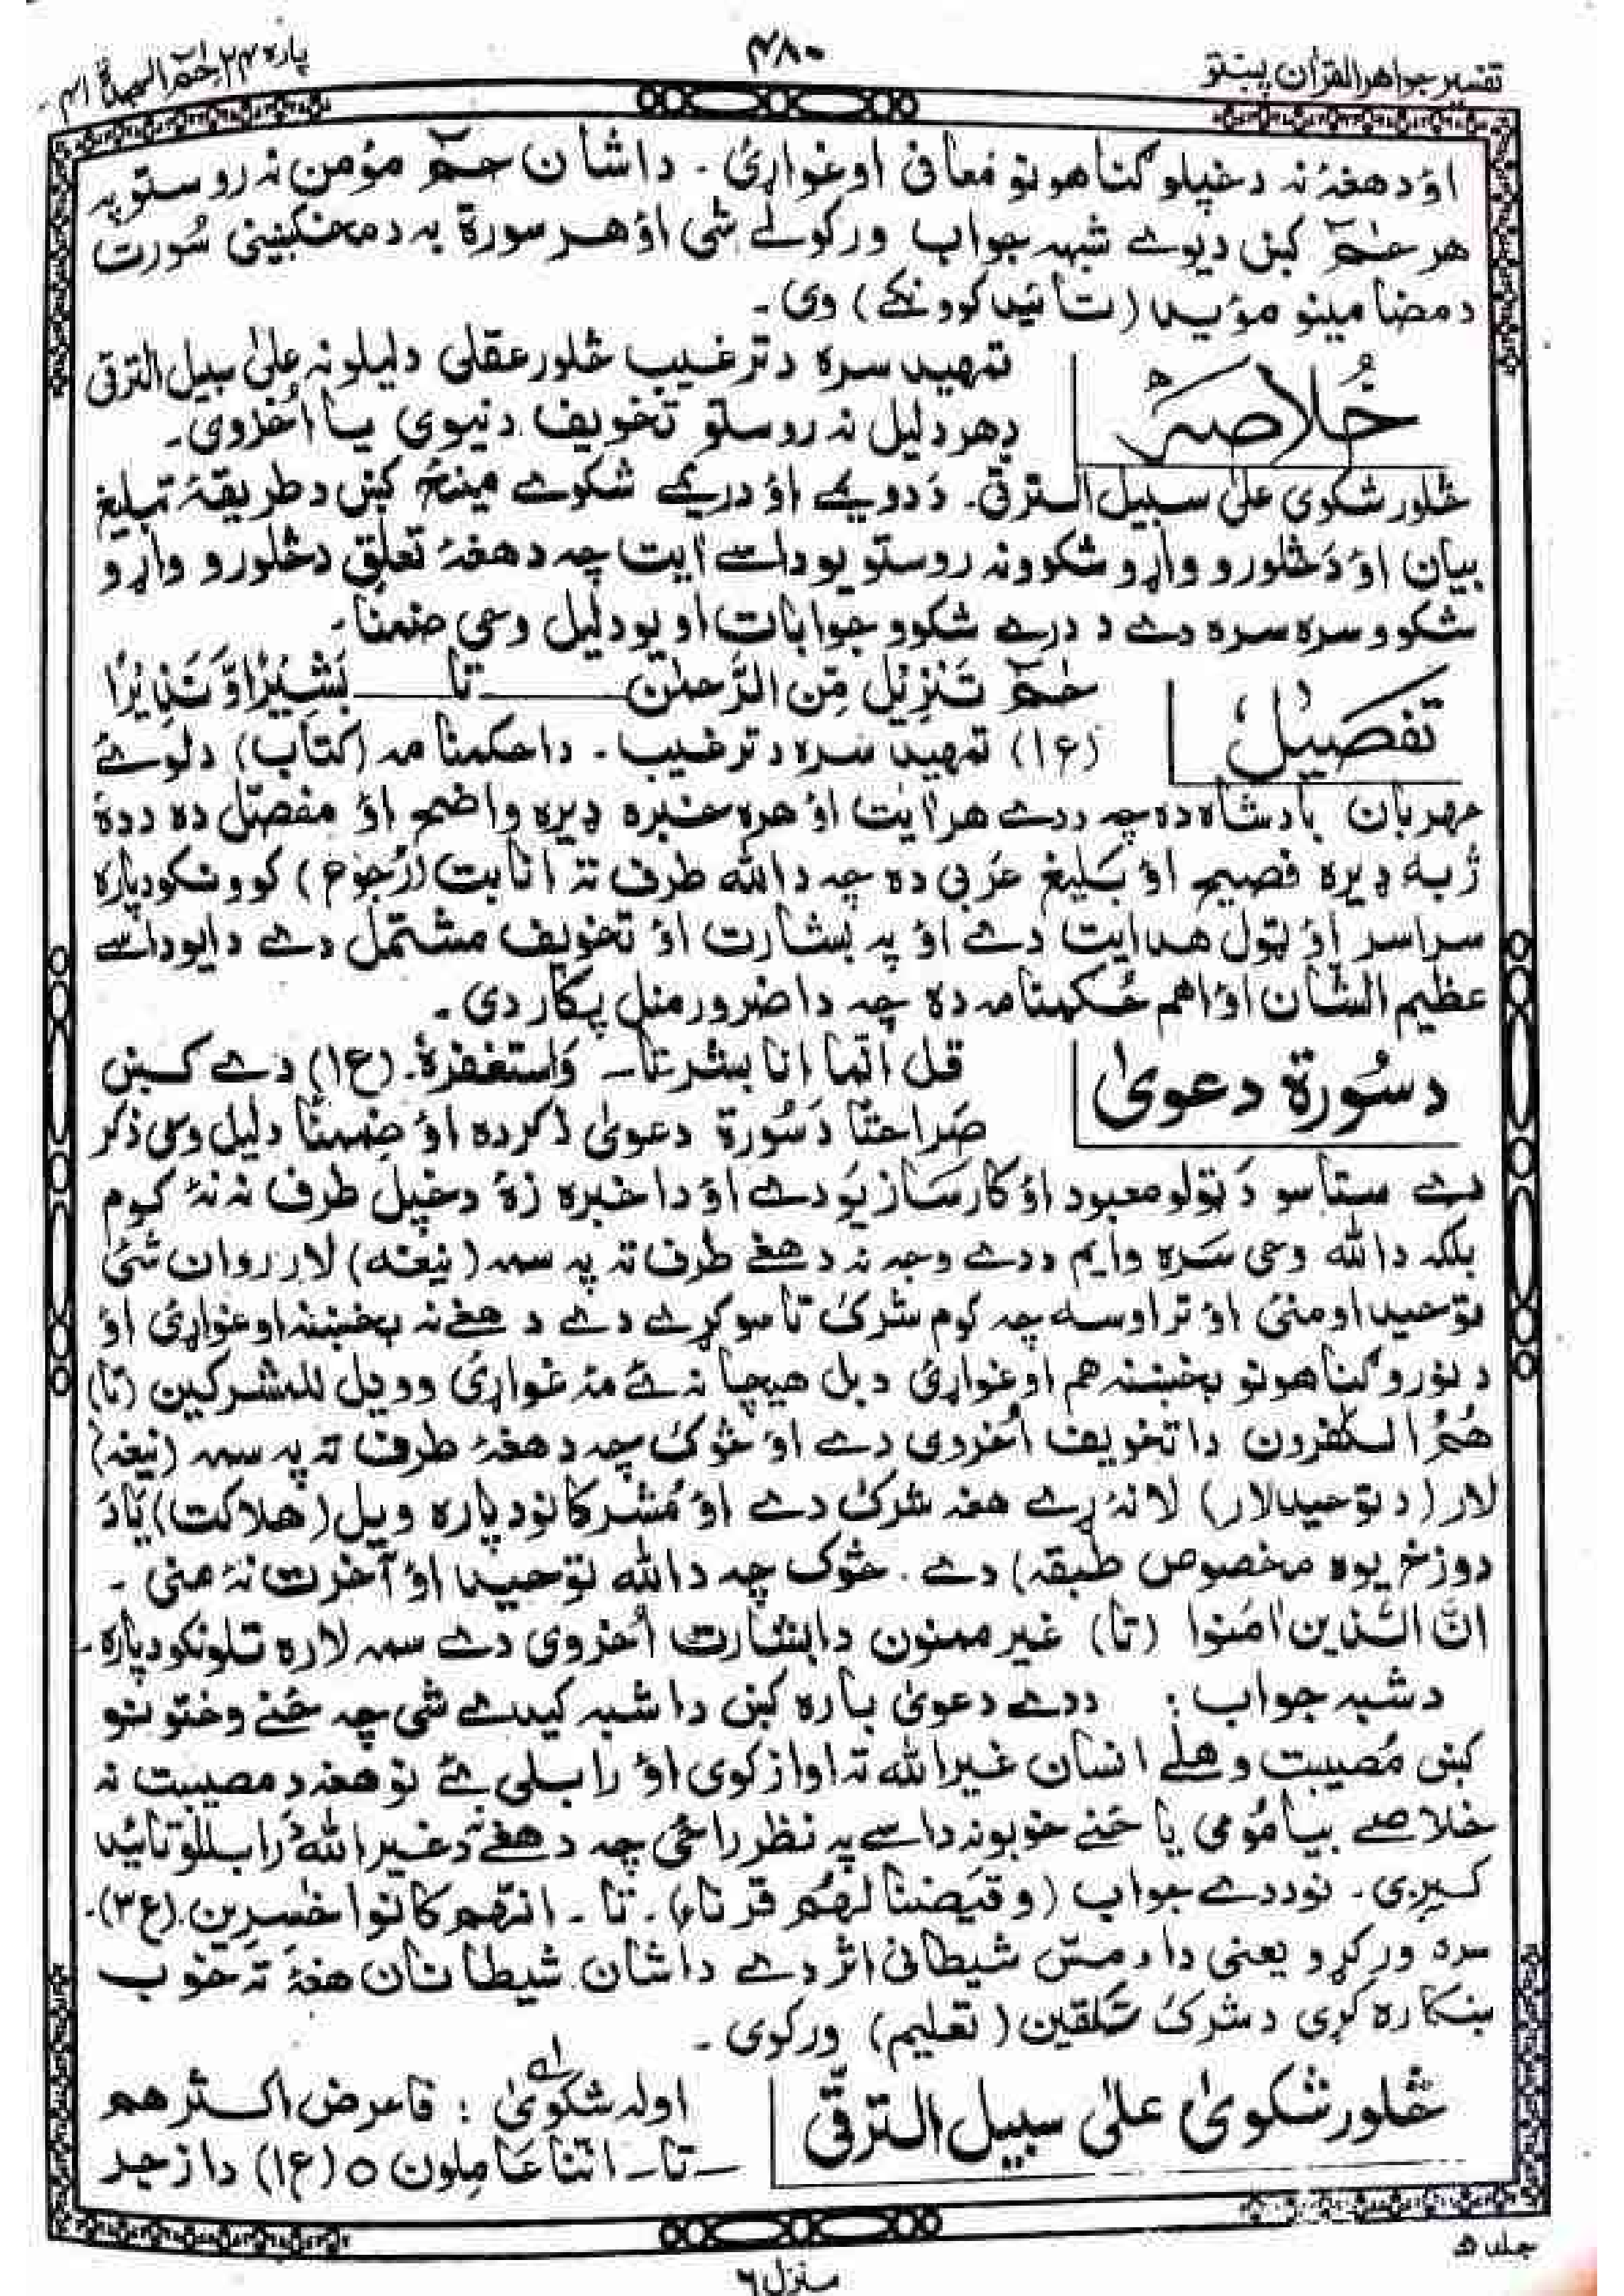 تفسیر جواهر القرآن پښتو
۴۸۰
پاره ۲۴ حٰمٓ السجدة ۴۱
اؤ دهغهٔ نه دخپلو ګناهونو معافی اوغواړئ ۔ داشان حٰمٓ مؤمن نه روستو په
هر حٰمٓ کښ دیوے شبهه جواب ورکولے شی اؤ هر سورة به دمخکښینی سُورت
دمضامینو مؤید (تائید کوونکے) وی ۔
خُلاصه
تمهید سره دترغیب څلور عقلی دلیلونه علیٰ سبیل الترقی
دهر دلیل نه روستو تخویف دنیوی یا اُخروی ۔
څلور شکوی علیٰ سبیل الترقی ۔ دَ دویمے اؤ دریمے شکوے مینځ کښ دطریقۀ تبلیغ
بیان اؤ دَ څلورو واړو شکوونه روستو یو داسے اٰیت چه دهغهٔ تعلق دڅلورو واړو
شکوو سره سره دے د درے شکوو جوابات او یو دلیل وحی ضمناً ۔
تفصیل
حٰمٓ تَنْزِیْلٌ مِّنَ الرَّحمٰن ــــ تا ــــ بَشِیْرًا وَّ نَذِیْرًا
(ع۱) تمهید سره دترغیب ۔ داحکمنامه (کتاب) دلوئے
مهربان بادشاه ده چه ددے هر اٰیت اؤ هره خبره ډیره واضحه اؤ مفصّل ده ددهٔ
ژبه ډیره فصیح اؤ بَلیغ عَربی ده چه دالله طرف ته انابت (رُجوع) کوونکو دپاره
سراسر اؤ ټول هدایت دے اؤ په بشارت اؤ تخویف مشتمل دے دا یو داسے
عظیم الشان اؤ اهم حُکمنامه ده چه دا ضرور منل پکار دی ۔
دسُورة دعویٰ
قل انّما انا بشر تا ــ وَاستغفرهٔ ۔ (ع۱) دے کښ
صَراحتًا دَ سُورة دعویٰ ذکر ده اؤ ضمنًا دلیل وحی ذکر
دے ستاسو دَ ټولو معبود اؤ کارسَاز یَو دے اؤ دا خبره زهٔ دخپل طرف نه نهٔ کوم
بلکه دالله وحی سَره وایم ددے وجه نه دهغے طرف ته په سمه (نیغه) لار روان شئ
توحید اومنئ اؤ تر اوسه چه کوم شرک تاسو کړے دے دهغے نه بخښنه اوغواړئ اؤ
دنورو ګناهونو بخښنه هم اوغواړئ دبل هیچا نه ئے مهٔ غواړئ وویل للمشرکین (تا)
هُمُ الکٰفرون دا تخویف اُخروی دے اؤ څوک چه دهغهٔ طرف ته په سمه (نیغه)
لار (دتوحید لار) لا نهٔ ړے هغه شرک دے اؤ مُشرکانو دپاره ویل (هلاکت) یا دَ
دوزخ یوه مخصوص طبقه) دے ۔ څوک چه دالله توحید اؤ آخرت نهٔ منی ۔
انّ الّذین اٰمنوا (تا) غیر ممنون دا بشارت اُخروی دے سمه لاره تلونکو دپاره ۔
دشبه جواب : ددے دعویٰ باره کښ دا شبه کیدے شی چه ځنے وختونو
کښ مُصیبت وهلے انسان غیر الله ته اواز کوی اؤ رابلی ئے نو هغه دمصیبت نه
خلاصے بیامُومی یا ځنے خوبونه داسے په نظر راځی چه دهغے نه دغیر اللهٔ رابللو تائید
کیږی ۔ نو ددے جواب (وقیضنا لهُم قرناء) ۔ تا ۔ انّهم کانوا خٰسرین (ع۳) ۔
سره ورکړو یعنی دا دمسّ شیطانی اثر دے داشان شیطانان هغهٔ ته خوب
ښکاره کړی دشرک تلقین (تعلیم) ورکوی ۔
څلور شکویٰ علیٰ سبیل الترقّی
اوله شکویٰ : فاعرض اکثرهم
ــ تا ــ انّنا عَاملون ○ (ع۱) دا زجر
جلد ۵
منزل ۶